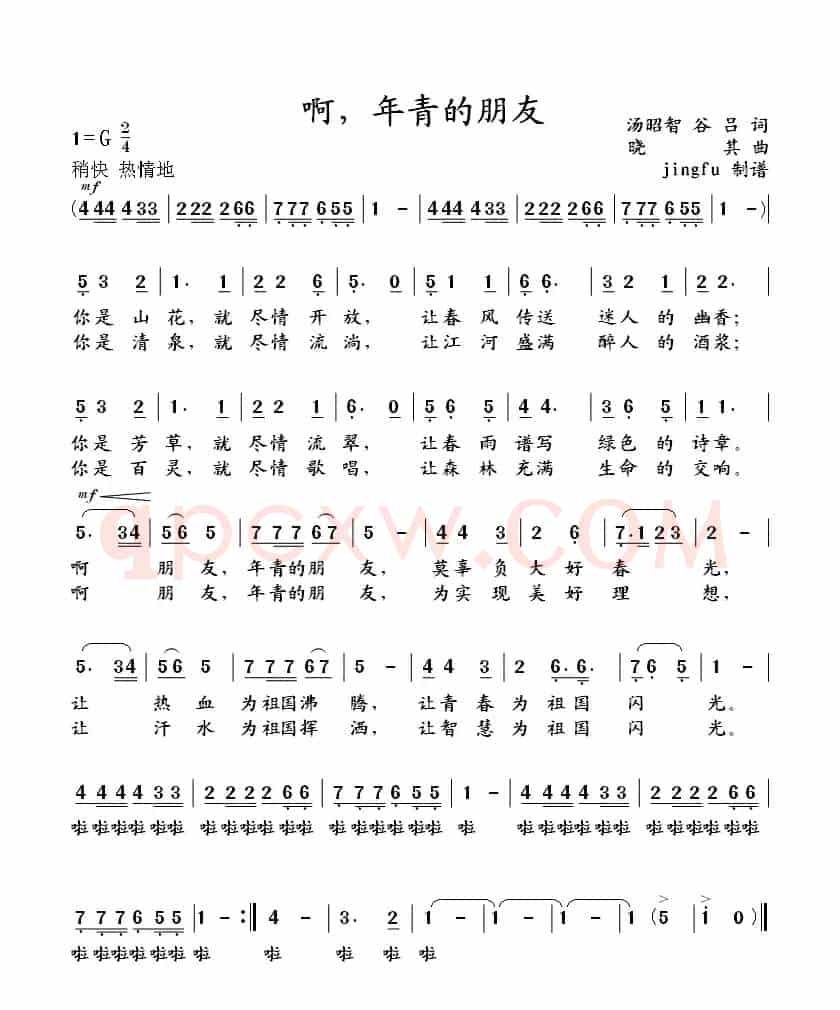 啊，年青的朋友
1=G 2/4
汤昭智 谷 吕 词
晓 其 曲
稍快 热情地
jingfu 制谱
mf
(4 44 4 33 | 2 22 2 66 | 7 77 6 55 | 1 - | 4 44 4 33 | 2 22 2 66 | 7 77 6 55 | 1 - )|
5 3 2 | 1. 1 | 2 2 6 | 5. 0 | 5 1 1 | 6 6. | 3 2 1 | 2 2. |
你是 山 花，就 尽情 开 放， 让春 风 传送 迷人 的 幽香；
你是 清 泉，就 尽情 流 淌， 让江 河 盛满 醉人 的 酒浆；
5 3 2 | 1. 1 | 2 2 1 | 6. 0 | 5 6 5 | 4 4. | 3 6 5 | 1 1. |
你是 芳 草，就 尽情 流 翠， 让春 雨 谱写 绿色 的 诗章。
你是 百 灵，就 尽情 歌 唱， 让森 林 充满 生命 的 交响。
mf
5. 34 | 56 5 | 7 77 67 | 5 - | 4 4 3 | 2 6 | 7.123 | 2 - |
啊 朋 友，年青的朋 友， 莫辜 负 大 好 春 光，
啊 朋 友，年青的朋 友， 为实 现 美 好 理 想，
qpcxw.COM
5. 34 | 56 5 | 7 77 67 | 5 - | 4 4 3 | 2 6.6. | 76 5 | 1 - |
让 热 血 为祖国沸 腾，让青 春 为 祖 国 闪 光。
让 汗 水 为祖国挥 洒，让智 慧 为 祖 国 闪 光。
4 44 4 33 | 2 22 2 66 | 7 77 6 55 | 1 - | 4 44 4 33 | 2 22 2 66 |
啦 啦啦啦啦啦 啦 啦啦啦啦啦 啦 啦啦啦啦啦 啦 啦 啦啦啦啦啦 啦 啦啦啦啦啦
7 77 6 55 | 1 - :‖ 4 - | 3. 2 | 1 - | 1 - | 1 - | 1 (5 | i 0 )‖
啦 啦啦啦啦啦 啦 啦 啦 啦 啦